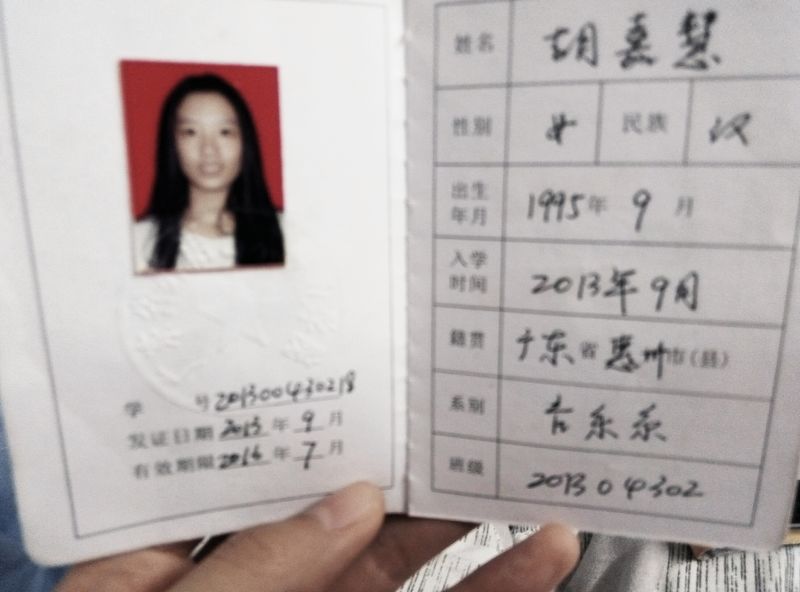 学 号 201300430218
发证日期 2013 年 9 月
有效期限 2016 年 7 月
姓名 胡嘉慧
性别 女 民族 汉
出生年月 1995 年 9 月
入学时间 2013年9月
籍贯 广东 省 惠州 市(县)
系别 音乐系
班级 2013 0 4302